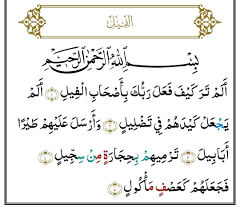 الفيل
بِسْمِ اللَّهِ الرَّحْمَٰنِ الرَّحِيمِ
أَلَمْ تَرَ كَيْفَ فَعَلَ رَبُّكَ بِأَصْحَابِ الْفِيلِ ۝ أَلَمْ
يَجْعَلْ كَيْدَهُمْ فِي تَضْلِيلٍ ۝ وَأَرْسَلَ عَلَيْهِمْ طَيْرًا
أَبَابِيلَ ۝ تَرْمِيهِم بِحِجَارَةٍ مِّن سِجِّيلٍ ۝
فَجَعَلَهُمْ كَعَصْفٍ مَّأْكُولٍ ۝